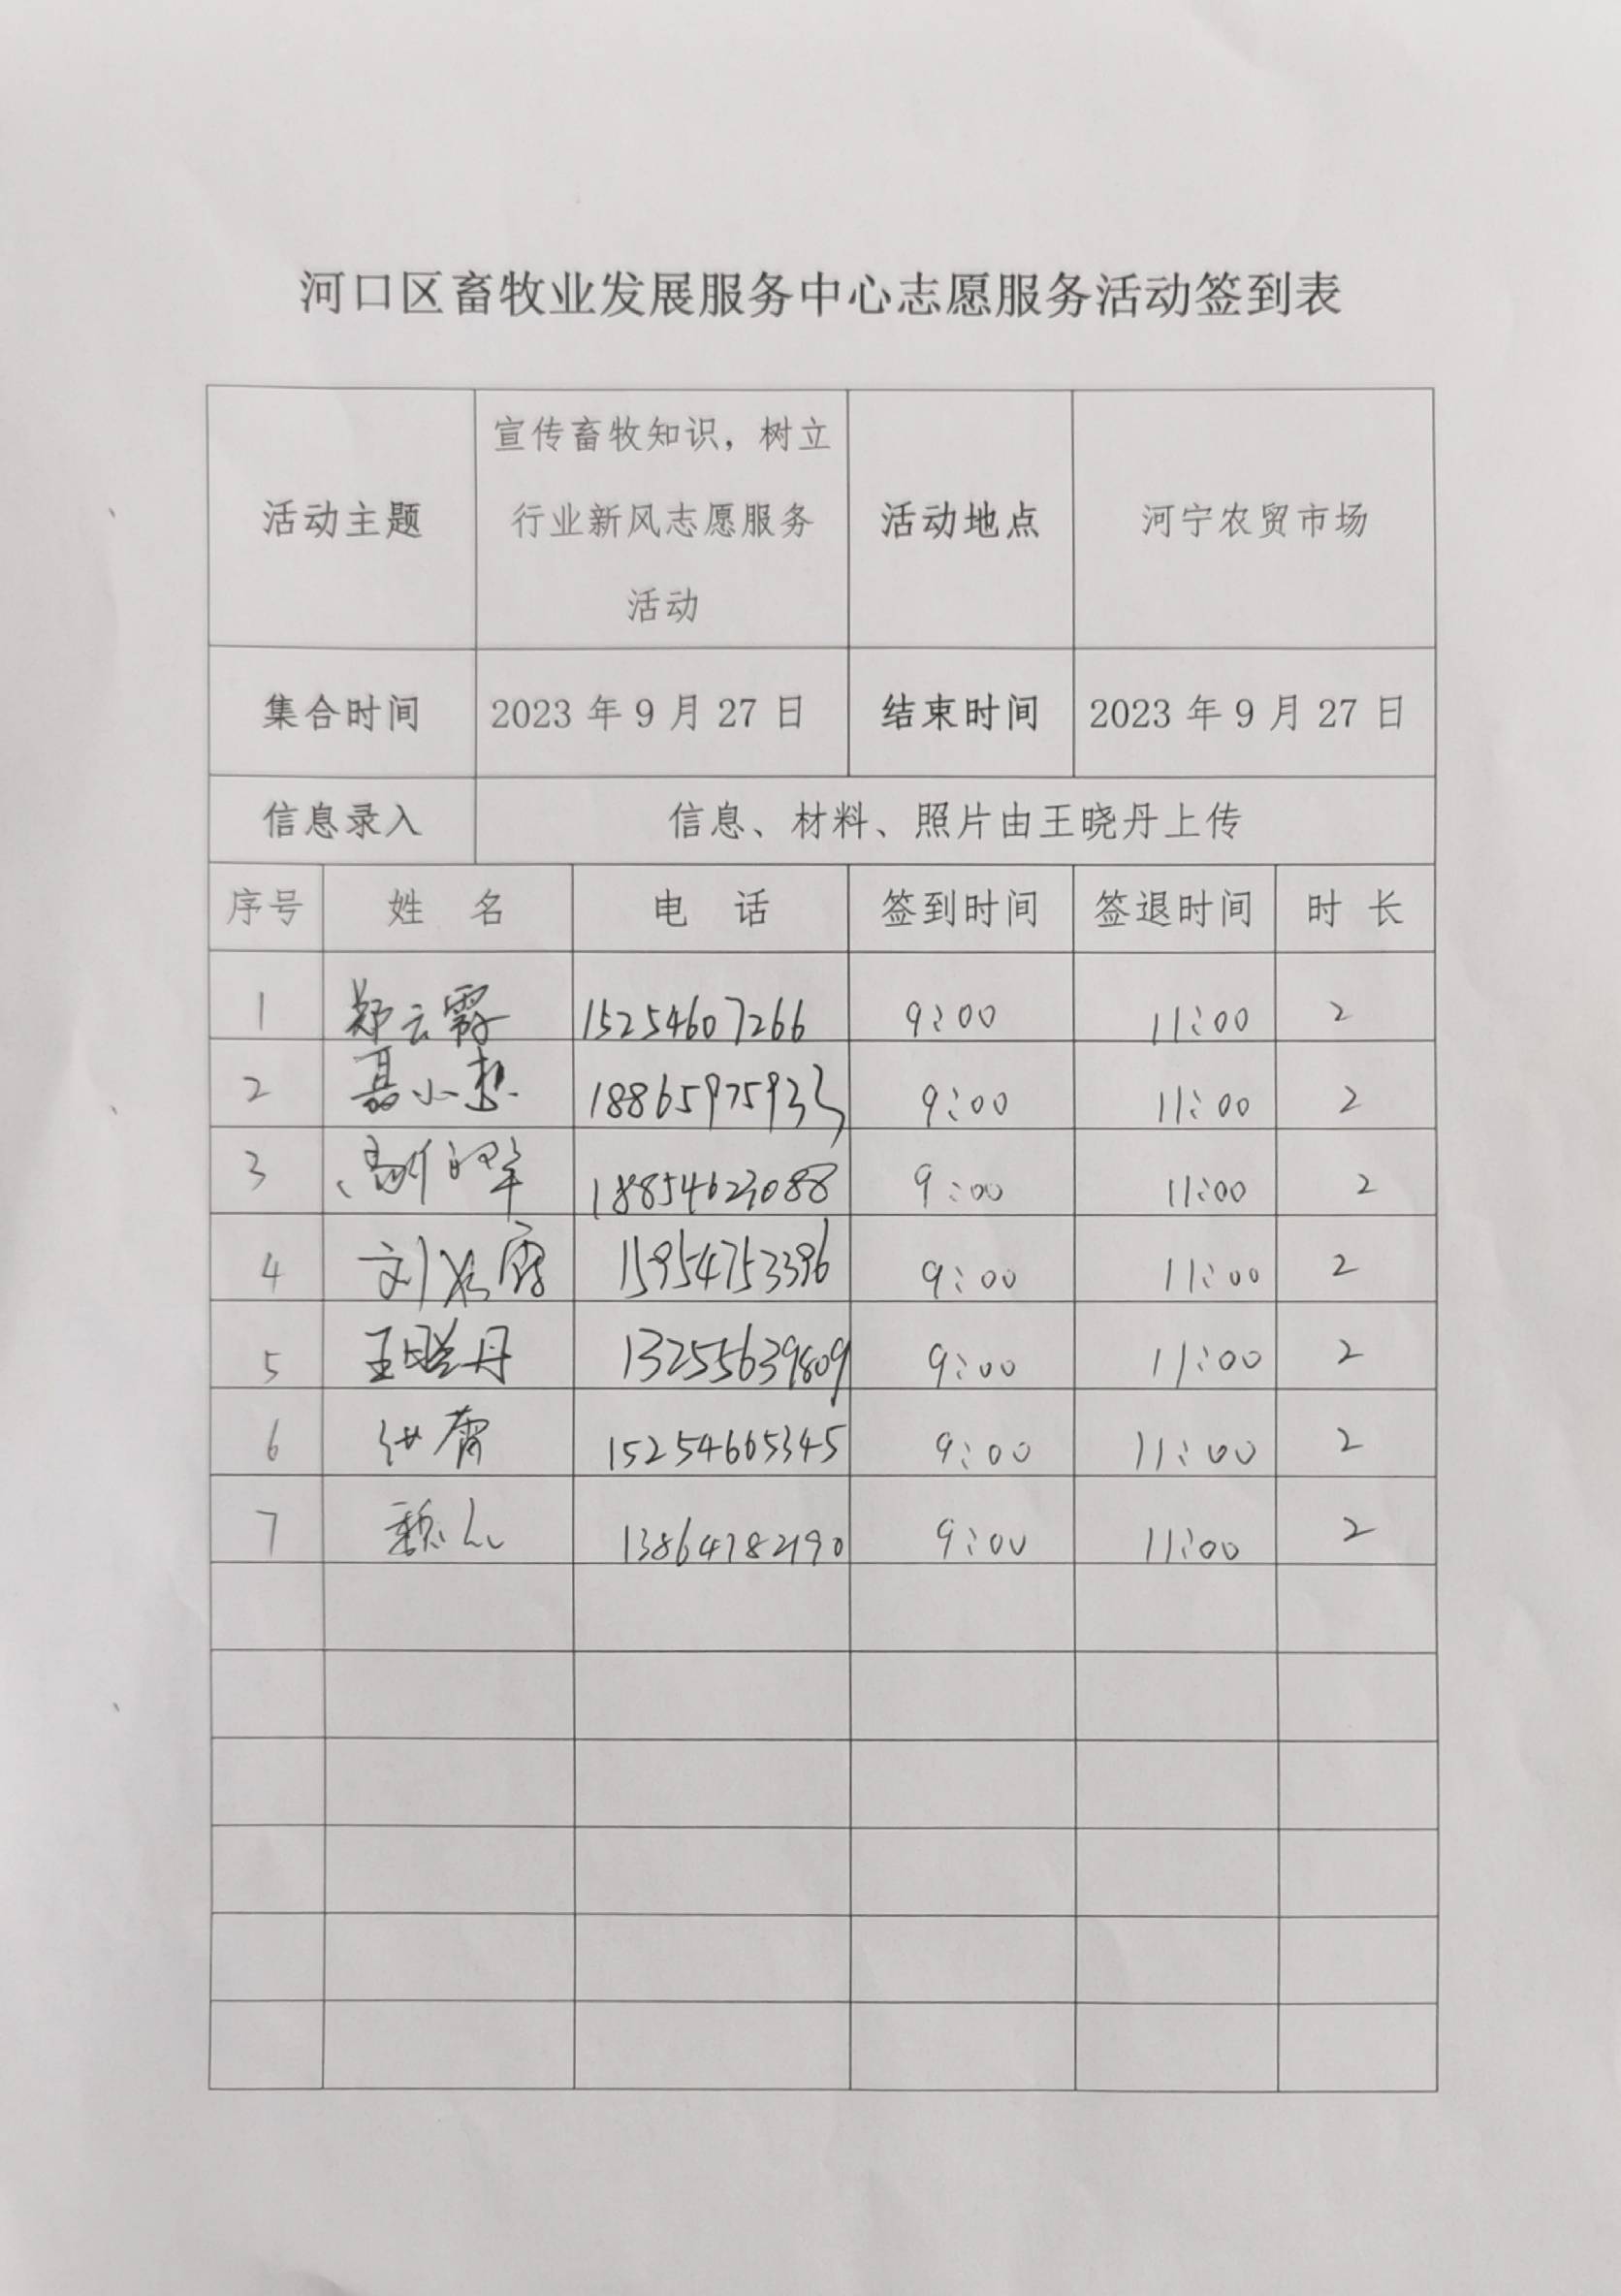 河口区畜牧业发展服务中心志愿服务活动签到表
活动主题 宣传畜牧知识，树立行业新风志愿服务活动 活动地点 河宁农贸市场
集合时间 2023 年 9 月 27 日 结束时间 2023 年 9 月 27 日
信息录入 信息、材料、照片由王晓丹上传
序号 姓 名 电 话 签到时间 签退时间 时 长
1 郑云霞 15254607266 9:00 11:00 2
2 聂小梦 18865975933 9:00 11:00 2
3 18854623088 9:00 11:00 2
4 刘 15954753396 9:00 11:00 2
5 王晓丹 13255639809 9:00 11:00 2
6 15254665345 9:00 11:00 2
7 13864782190 9:00 11:00 2